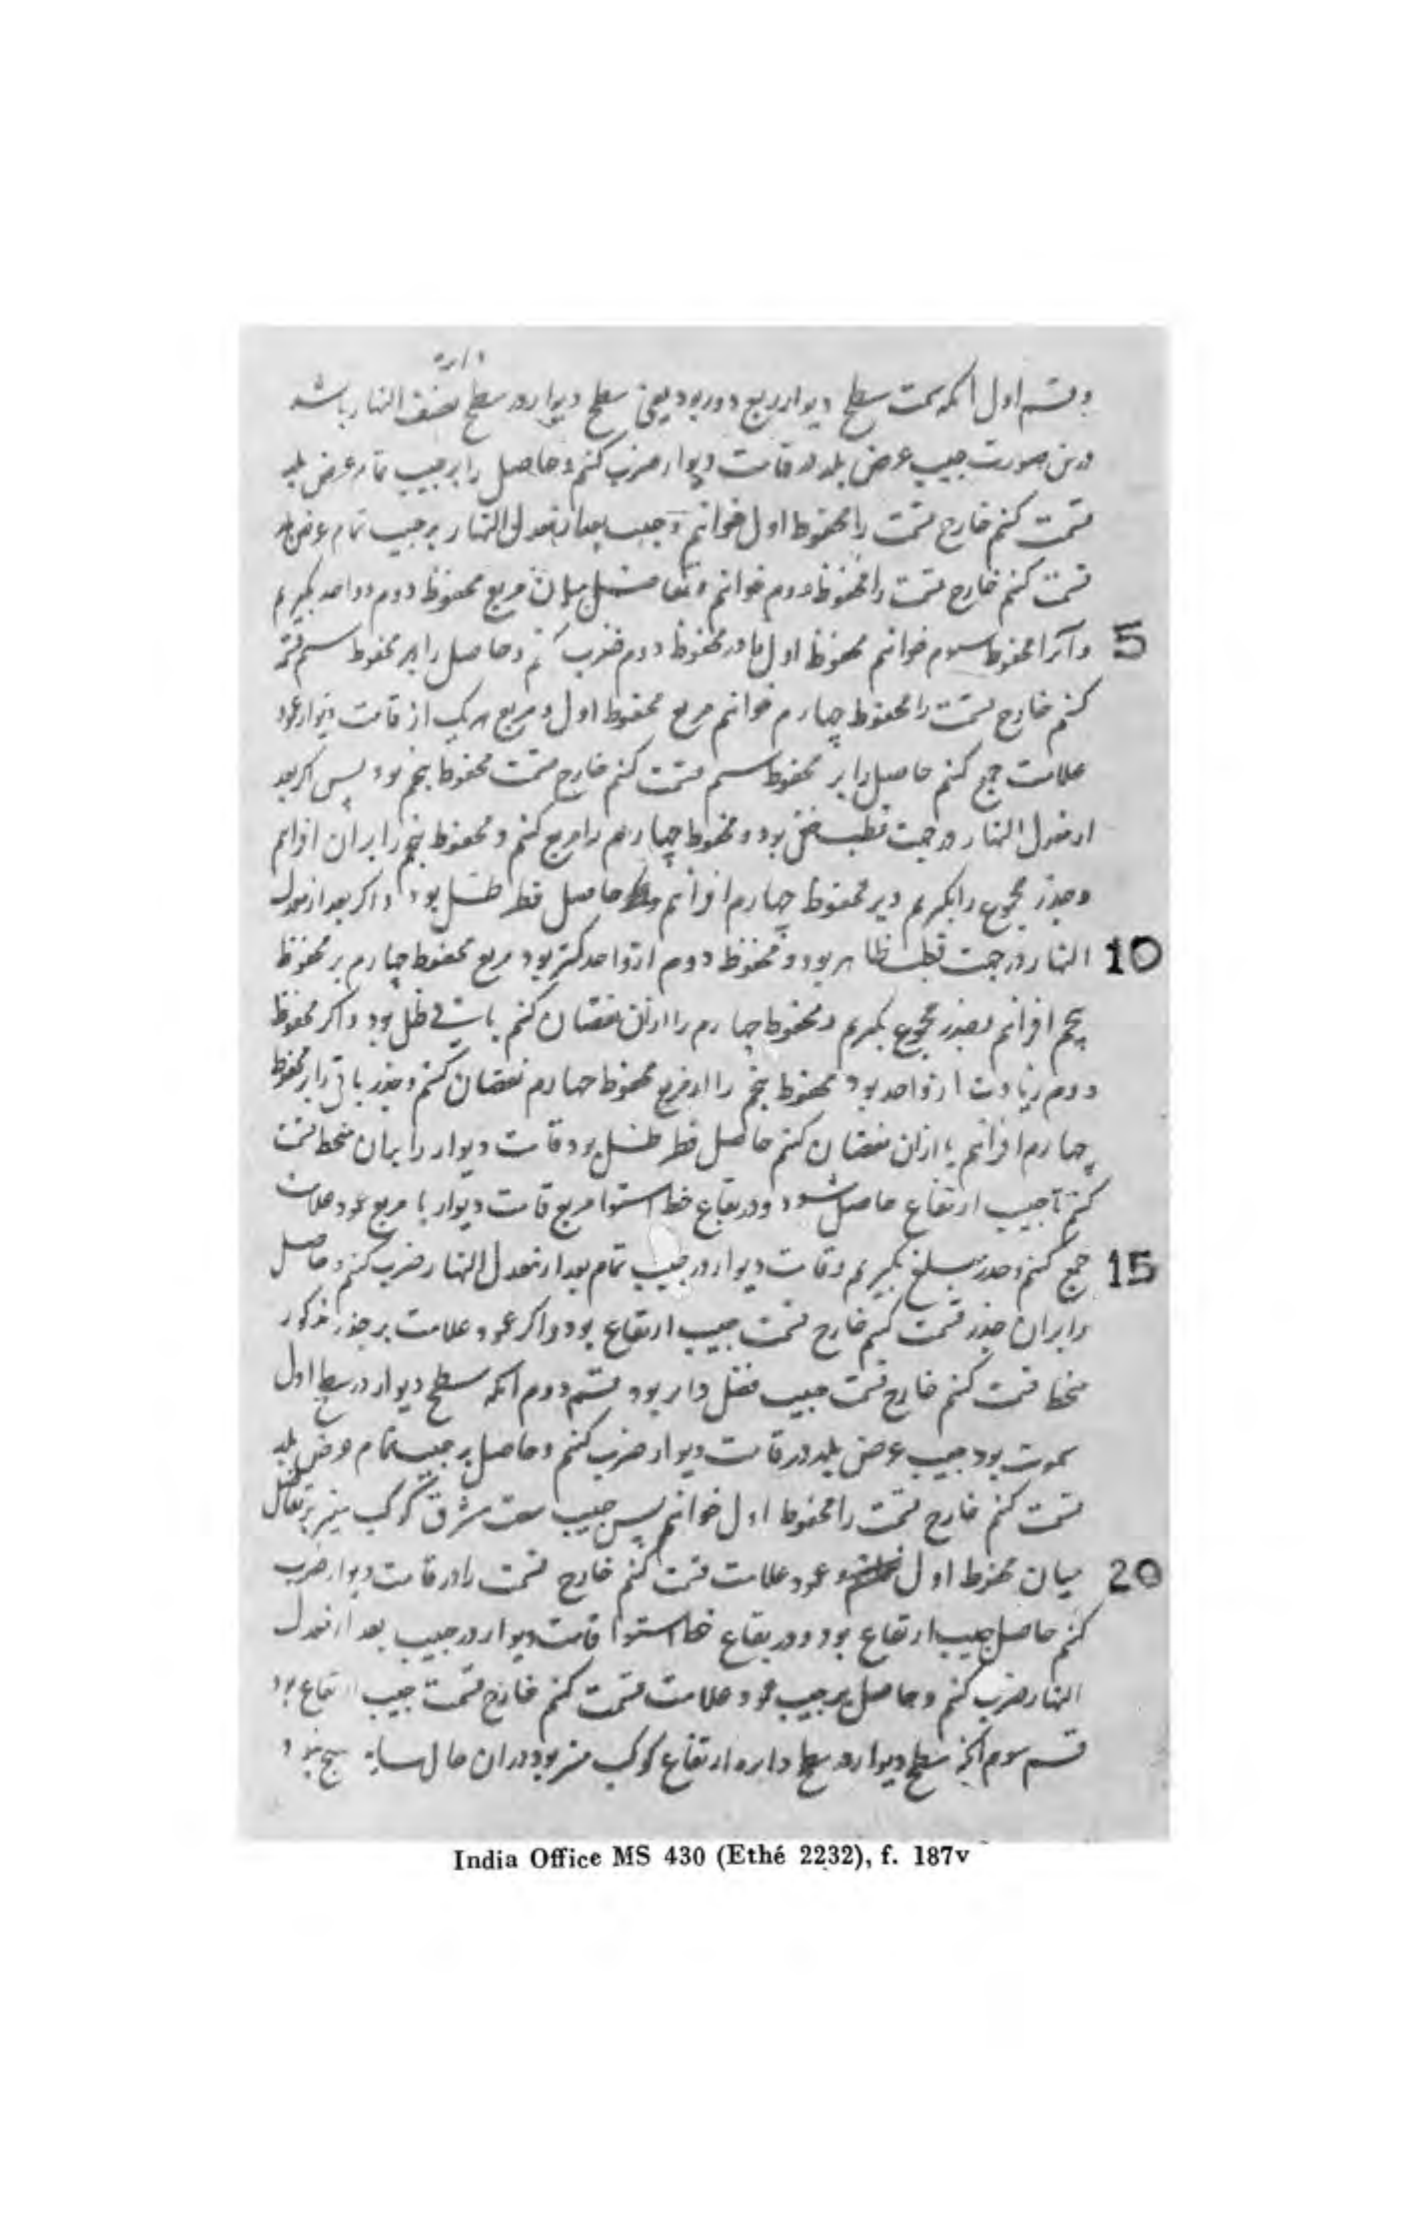 دایره
و قسم اول آنکه سمت سطح دیوار ربع دور بود یعنی سطح دیوار در سطح نصف النهار باشد
درین صورت جیب عرض بلد در قامت دیوار ضرب کنم و حاصل را بر جیب تمام عرض بلد
قسمت کنم خارج قسمت را محفوظ اول خوانم و جیب بعد از معدل النهار بر جیب تمام عرض بلد
قسمت کنم خارج قسمت را محفوظ دوم خوانم و تفاضل میان مربع محفوظ دوم و واحد بکیریم
5 و آنرا محفوظ سوم خوانم محفوظ اول را در محفوظ دوم ضرب کنم و حاصل را بر محفوظ سیم قسمة
کنم خارج قسمت را محفوظ چهارم خوانم مربع محفوظ اول و مربع هر یک از قامت دیوار و عمود
علامت جمع کنم حاصل را بر محفوظ سیم قسمت کنم خارج قسمت محفوظ پنجم بود پس اکر بعد
از معدل النهار در جهت قطب خفی بود و محفوظ چهارم را مربع کنم و محفوظ پنجم را بر آن افزایم
و جذر مجموع را بکیریم و بر محفوظ چهارم افزایم حاصل قطر ظل بود و اکر بعد از معدل
10 النهار در جهت قطب ظاهر بود و محفوظ دوم از واحد کمتر بود مربع محفوظ چهارم بر محفوظ
پنجم افزایم و جذر مجموع بکیریم و محفوظ چهارم را از آن نقصان کنم باقی ظل بود و اکر محفوظ
دوم زیادت از واحد بود محفوظ پنجم را از مربع محفوظ چهارم نقصان کنم و جذر باقی را بر محفوظ
چهارم افزایم یا از آن نقصان کنم حاصل قطر ظل بود قامت دیوار را بر آن منحط قسمت
کنم تا جیب ارتفاع حاصل شود و در بقاع خط استوا مربع قامت دیوار با مربع عمود علامت
15 جمع کنم و جذر مبلغ بکیریم و قامت دیوار در جیب تمام بعد از معدل النهار ضرب کنم و حاصل
را بر آن جذر قسمت کنم خارج قسمت جیب ارتفاع بود و اکر عمود علامت بر جذر مذکور
منحط قسمت کنم خارج قسمت جیب فضل دایر بود قسم دوم آنکه سطح دیوار در سطح اول
سموت بود جیب عرض بلد در قامت دیوار ضرب کنم و حاصل بر جیب تمام عرض بلد
قسمت کنم خارج قسمت را محفوظ اول خوانم پس جیب سعت مشرق کوکب منیر بر تفاضل
20 میان محفوظ اول و عمود علامت قسمت کنم خارج قسمت را در قامت دیوار ضرب
کنم حاصل جیب ارتفاع بود و در بقاع خط استوا قامت دیوار در جیب بعد از معدل
النهار ضرب کنم و حاصل بر جیب عمود علامت قسمت کنم خارج قسمت جیب ارتفاع بود
قسم سوم آنکه سطح دیوار در سطح دایره ارتفاع کوکب منیر بود در آن حال سایه هیچ نبود
India Office MS 430 (Ethé 2232), f. 187v